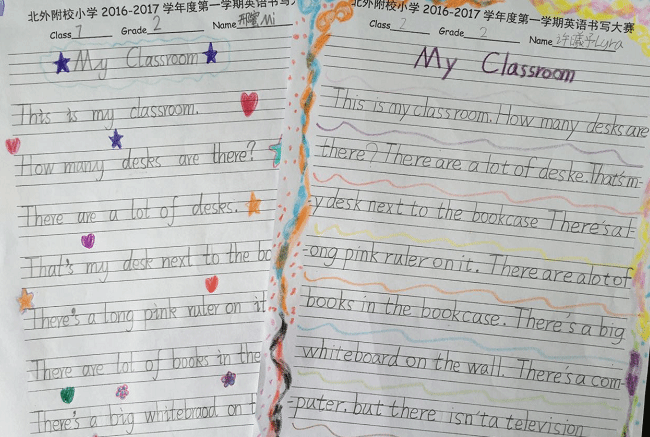 北外附校小学 2016-2017 学年度第一学期英语书写大
Class 7 Grade 2 Name Mi
My Classroom
This is my classroom.
How many desks are there?
There are a lot of desks.
That's my desk next to the bo
There's a long pink ruler on it
There are lot of books in the
There's a big whitebraod on t
北外附校小学 2016-2017 学年度第一学期英语书写大赛
Class 2 Grade 2 Name Lyra
My Classroom
This is my classroom. How many desks are
there? There are a lot of deske. That's m-
-y desk next to the bookcase There's a l-
-ong pink ruler on it. There are a lot of
books in the bookcase. There's a big
whiteboard on the wall. There's a com-
-puter. but there isn't a television